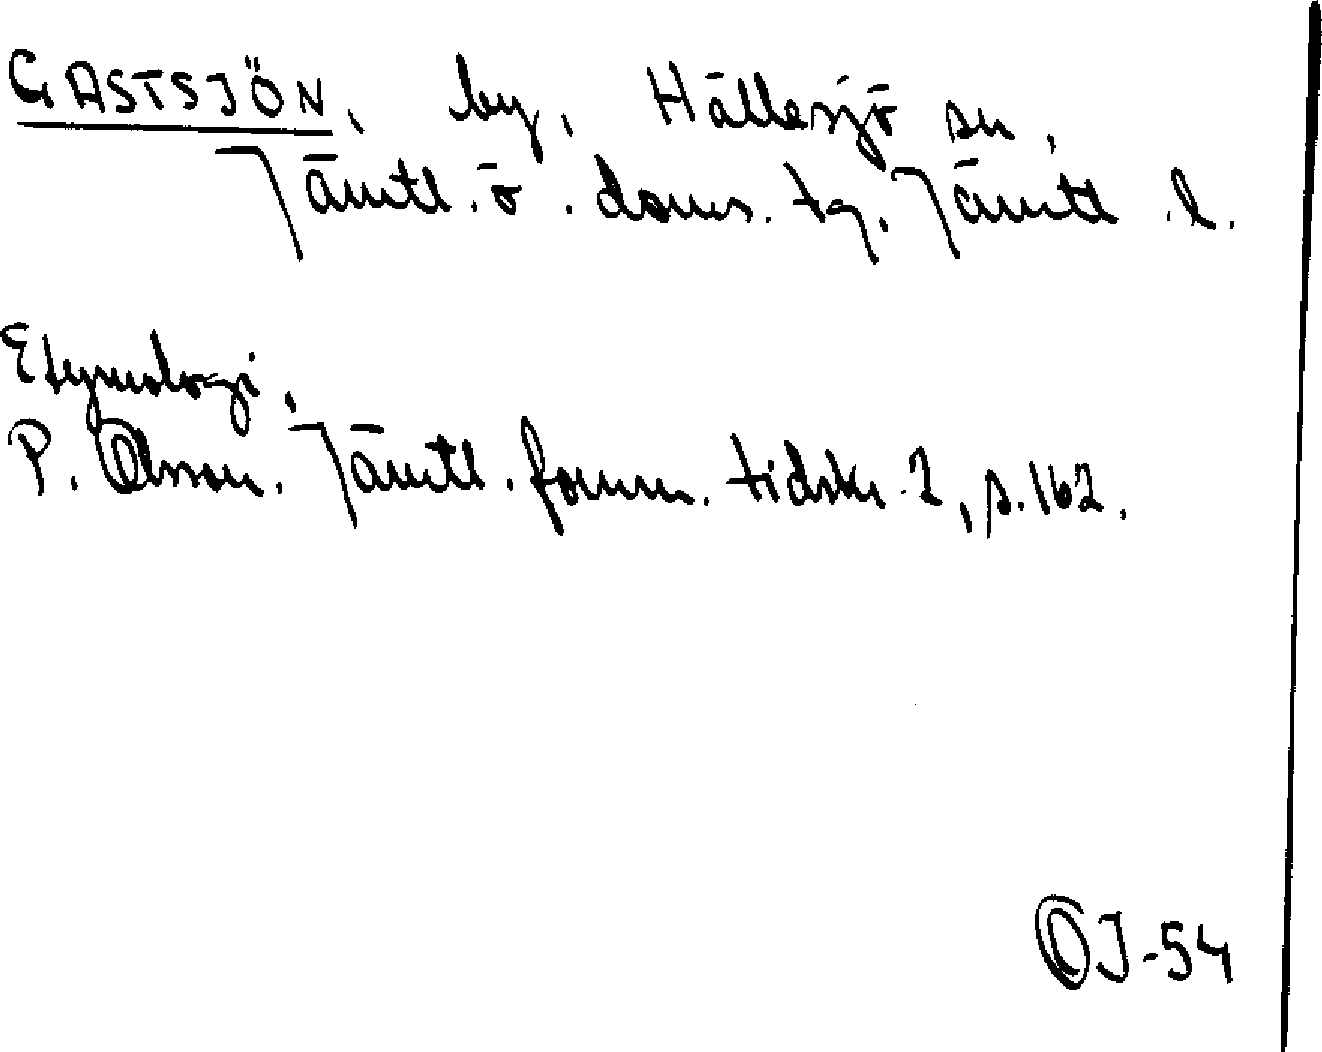 GASTSJÖN, by, Hällesjö sn,
Jämtl. ö. doms. tg. Jämtl. l.
Etymologi,
P. Olsson. Jämtl. fornm. tidskr. 2, s. 162.
OJ-54